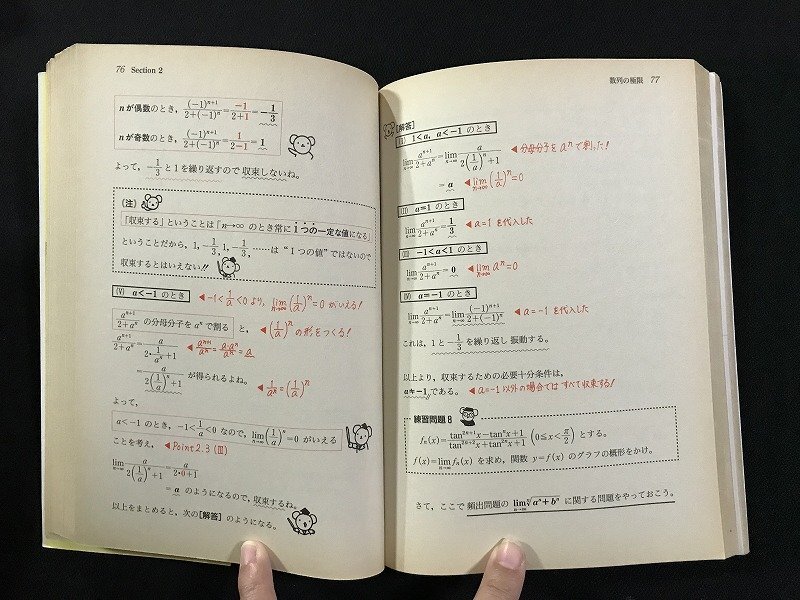 76 Section 2
nが偶数のとき, (-1)^{n+1}/(2+(-1)^n) = -1/(2+1) = -1/3
nが奇数のとき, (-1)^{n+1}/(2+(-1)^n) = 1/(2-1) = 1
よって, -1/3 と1を繰り返すので 収束しないね。
(注)
「収束する」ということは「n→∞ のとき常に1つの一定な値になる」
ということだから, 1, -1/3, 1, -1/3, ……は "1つの値" ではないので
収束するとはいえない!!
(V) a<-1 のとき ◀ -1<1/a<0 より, lim_{n→∞}(1/a)^n=0 がいえる!
a^{n+1}/(2+a^n) の分母分子を a^n で割る と, ◀ (1/a)^n の形をつくる!
a^{n+1}/(2+a^n) = a/(2・1/a^n+1) ◀ a^{n+1}/a^n = a・a^n/a^n = a
= a/(2(1/a)^n+1) が得られるよね。 ◀ 1/a^n = (1/a)^n
よって,
a<-1 のとき, -1<1/a<0 なので, lim_{n→∞}(1/a)^n=0 がいえる
ことを考え, ◀ Point 2.3 (Ⅲ)
lim_{n→∞} a/(2(1/a)^n+1) = a/(2・0+1)
= a のようになるので, 収束するね。
以上をまとめると, 次の[解答] のようになる。
数列の極限 77
[解答]
1<a, a<-1 のとき
lim_{n→∞} a^{n+1}/(2+a^n) = lim_{n→∞} a/(2(1/a)^n+1) ◀ 分母分子を a^n で割った!
= a ◀ lim_{n→∞}(1/a)^n=0
(ii) a=1 のとき
lim_{n→∞} a^{n+1}/(2+a^n) = 1/3 ◀ a=1 を代入した
-1<a<1 のとき
lim_{n→∞} a^{n+1}/(2+a^n) = 0 ◀ lim_{n→∞} a^n=0
a=-1 のとき
lim_{n→∞} a^{n+1}/(2+a^n) = lim_{n→∞} (-1)^{n+1}/(2+(-1)^n) ◀ a=-1 を代入した
これは, 1と -1/3 を繰り返し 振動する。
以上より, 収束するための必要十分条件は,
a≠-1 である。 ◀ a=-1 以外の場合では すべて収束する!
練習問題 8
f_n(x) = (tan^{2n+1}x-tan^n x+1)/(tan^{2n+2}x+tan^{2n}x+1) (0≦x<π/2) とする。
f(x)=lim_{n→∞} f_n(x) を求め, 関数 y=f(x) のグラフの概形をかけ。
さて, ここで 頻出問題の lim_{n→∞} ⁿ√(a^n+b^n) に関する問題をやっておこう。